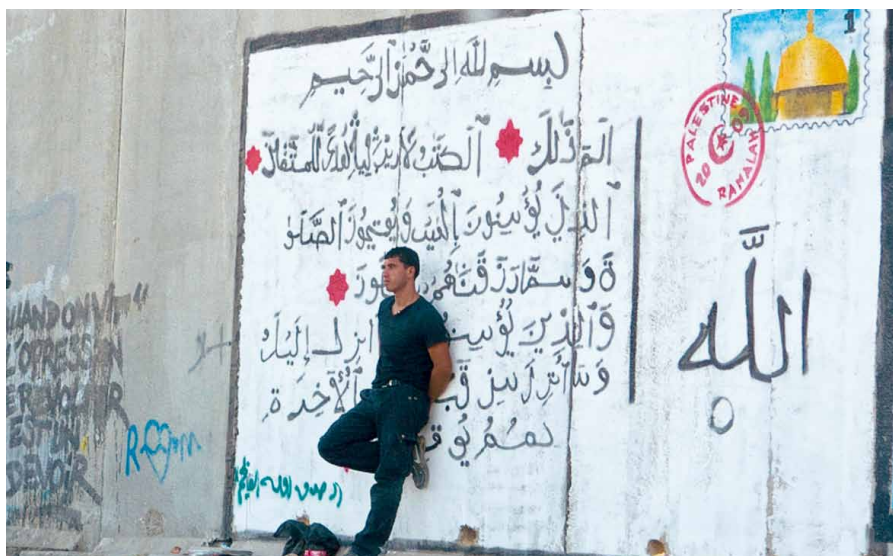 بسم لله الرحمن الرحيم
الم ذَٰلِكَ الكتب لا ريب فيه هدى للمتقين
الذين يؤمنون بالغيب ويقيمون الصلو
ة ومما رزقنهم
والذين يؤمنو انزل إليك
وما أنزل من قب الأخرة
هم يوق
1
PALESTINE
20 09
RAMALAH
اللَّه
UAND ON VIT"
OPPRESSION
EST UN
DEVOIR